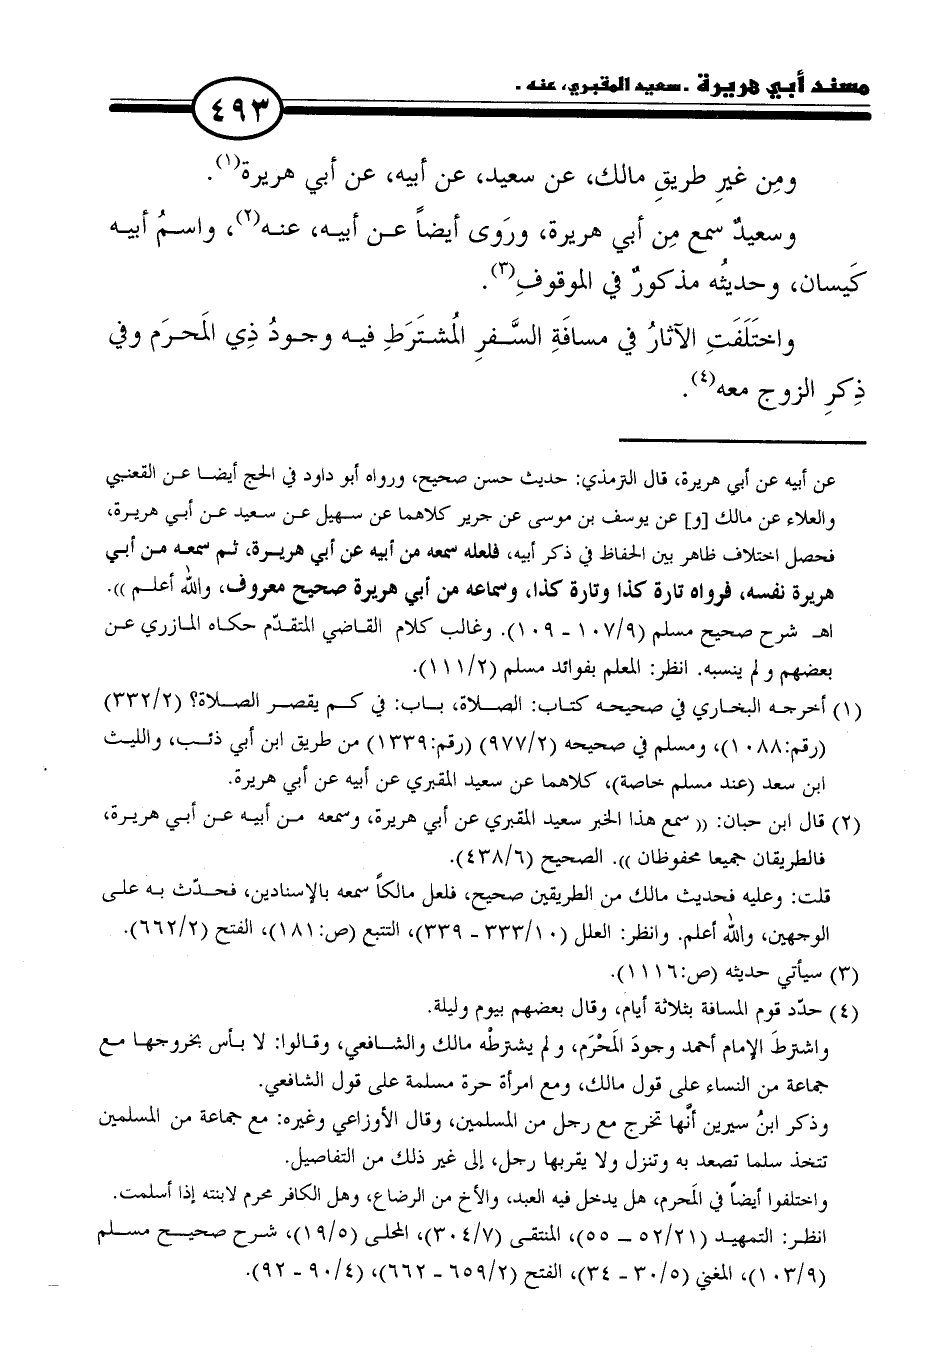 مسند أبي هريرة . سعيد المقبري، عنه .
٤٩٣
ومِن غيرِ طريقِ مالك، عن سعيد، عن أبيه، عن أبي هريرة(١).
وسعيدٌ سمع مِن أبي هريرة، وروَى أيضاً عـن أبيـه، عنـه(٢)، واسـمُ أبيـه
كَيسان، وحديثُه مذكورٌ في الموقوفِ(٣).
واختَلَفَتِ الآثارُ في مسافَةِ السَّـفرِ المُشـتَرَطِ فيـه وجـودُ ذِي المَحـرَم وفي
ذِكرِ الزوج معه(٤).
عن أبيه عن أبي هريرة، قال الترمذي: حديث حسن صحيح، ورواه أبو داود في الحج أيضـا عـن القعنبي
والعلاء عن مالك [و] عن يوسف بن موسى عن جرير كلاهما عن سـهيل عـن سـعيد عـن أبـي هريـرة،
فحصل اختلاف ظاهر بين الحفاظ في ذكر أبيه، فلعله سمعه من أبيه عن أبي هريـرة، ثـم سمعـه مـن أبـي
هريرة نفسه، فرواه تارة كذا وتارة كذا، وسماعه من أبي هريرة صحيح معروف، والله أعلـم )).
اهـ شرح صحيح مسلم (١٠٧/٩ - ١٠٩). وغالب كلام القـاضي المتقـدّم حكـاه المـازري عـن
بعضهم و لم ينسبه. انظر: المعلم بفوائد مسلم (١١١/٢).
(١) أخرجـه البخـاري في صحيحـه كتـاب: الصـلاة، بـاب: في كـم يقصـر الصـلاة؟ (٣٣٢/٢)
(رقم:١٠٨٨)، ومسلم في صحيحه (٩٧٧/٢) (رقم:١٣٣٩) من طريق ابن أبي ذئـب، والليـث
ابن سعد (عند مسلم خاصة)، كلاهما عن سعيد المقبري عن أبيه عن أبي هريرة.
(٢) قال ابن حبان: (( سمع هذا الخبر سعيد المقبري عن أبي هريرة، وسمعه مـن أبيـه عـن أبـي هريـرة،
فالطريقان جميعا محفوظان )). الصحيح (٤٣٨/٦).
قلت: وعليه فحديث مالك من الطريقين صحيح، فلعل مالكاً سمعه بالإسنادين، فحـدّث بـه علـى
الوجهين، والله أعلم. وانظر: العلل (٣٣٣/١٠ - ٣٣٩)، التتبع (ص:١٨١)، الفتح (٦٦٢/٢).
(٣) سيأتي حديثه (ص:١١١٦).
(٤) حدّد قوم المسافة بثلاثة أيام، وقال بعضهم بيوم وليلة.
واشترطَ الإمام أحمد وجودَ المَحْرَم، و لم يشترطْه مالك والشـافعي، وقـالوا: لا بـأس بخروجهـا مـع
جماعة من النساء على قول مالك، ومع امرأة حرة مسلمة على قول الشافعي.
وذكر ابنُ سيرين أنَّها تخرج مع رجل من المسلمين، وقال الأوزاعي وغيره: مع جماعة من المسلمين
تتخذ سلما تصعد به وتنزل ولا يقربها رجل، إلى غير ذلك من التفاصيل.
واختلفوا أيضاً في المَحرم، هل يدخل فيه العبد، والأخ من الرضاع، وهل الكافر محرم لابنته إذا أسلمت.
انظـر: التمهيـد (٥٢/٢١ – ٥٥)، المنتقـى (٣٠٤/٧)، المحلى (١٩/٥)، شـرح صحيـح مسـلم
(١٠٣/٩)، المغني (٣٠/٥ - ٣٤)، الفتح (٦٥٩/٢ - ٦٦٢)، (٩٠/٤ - ٩٢).